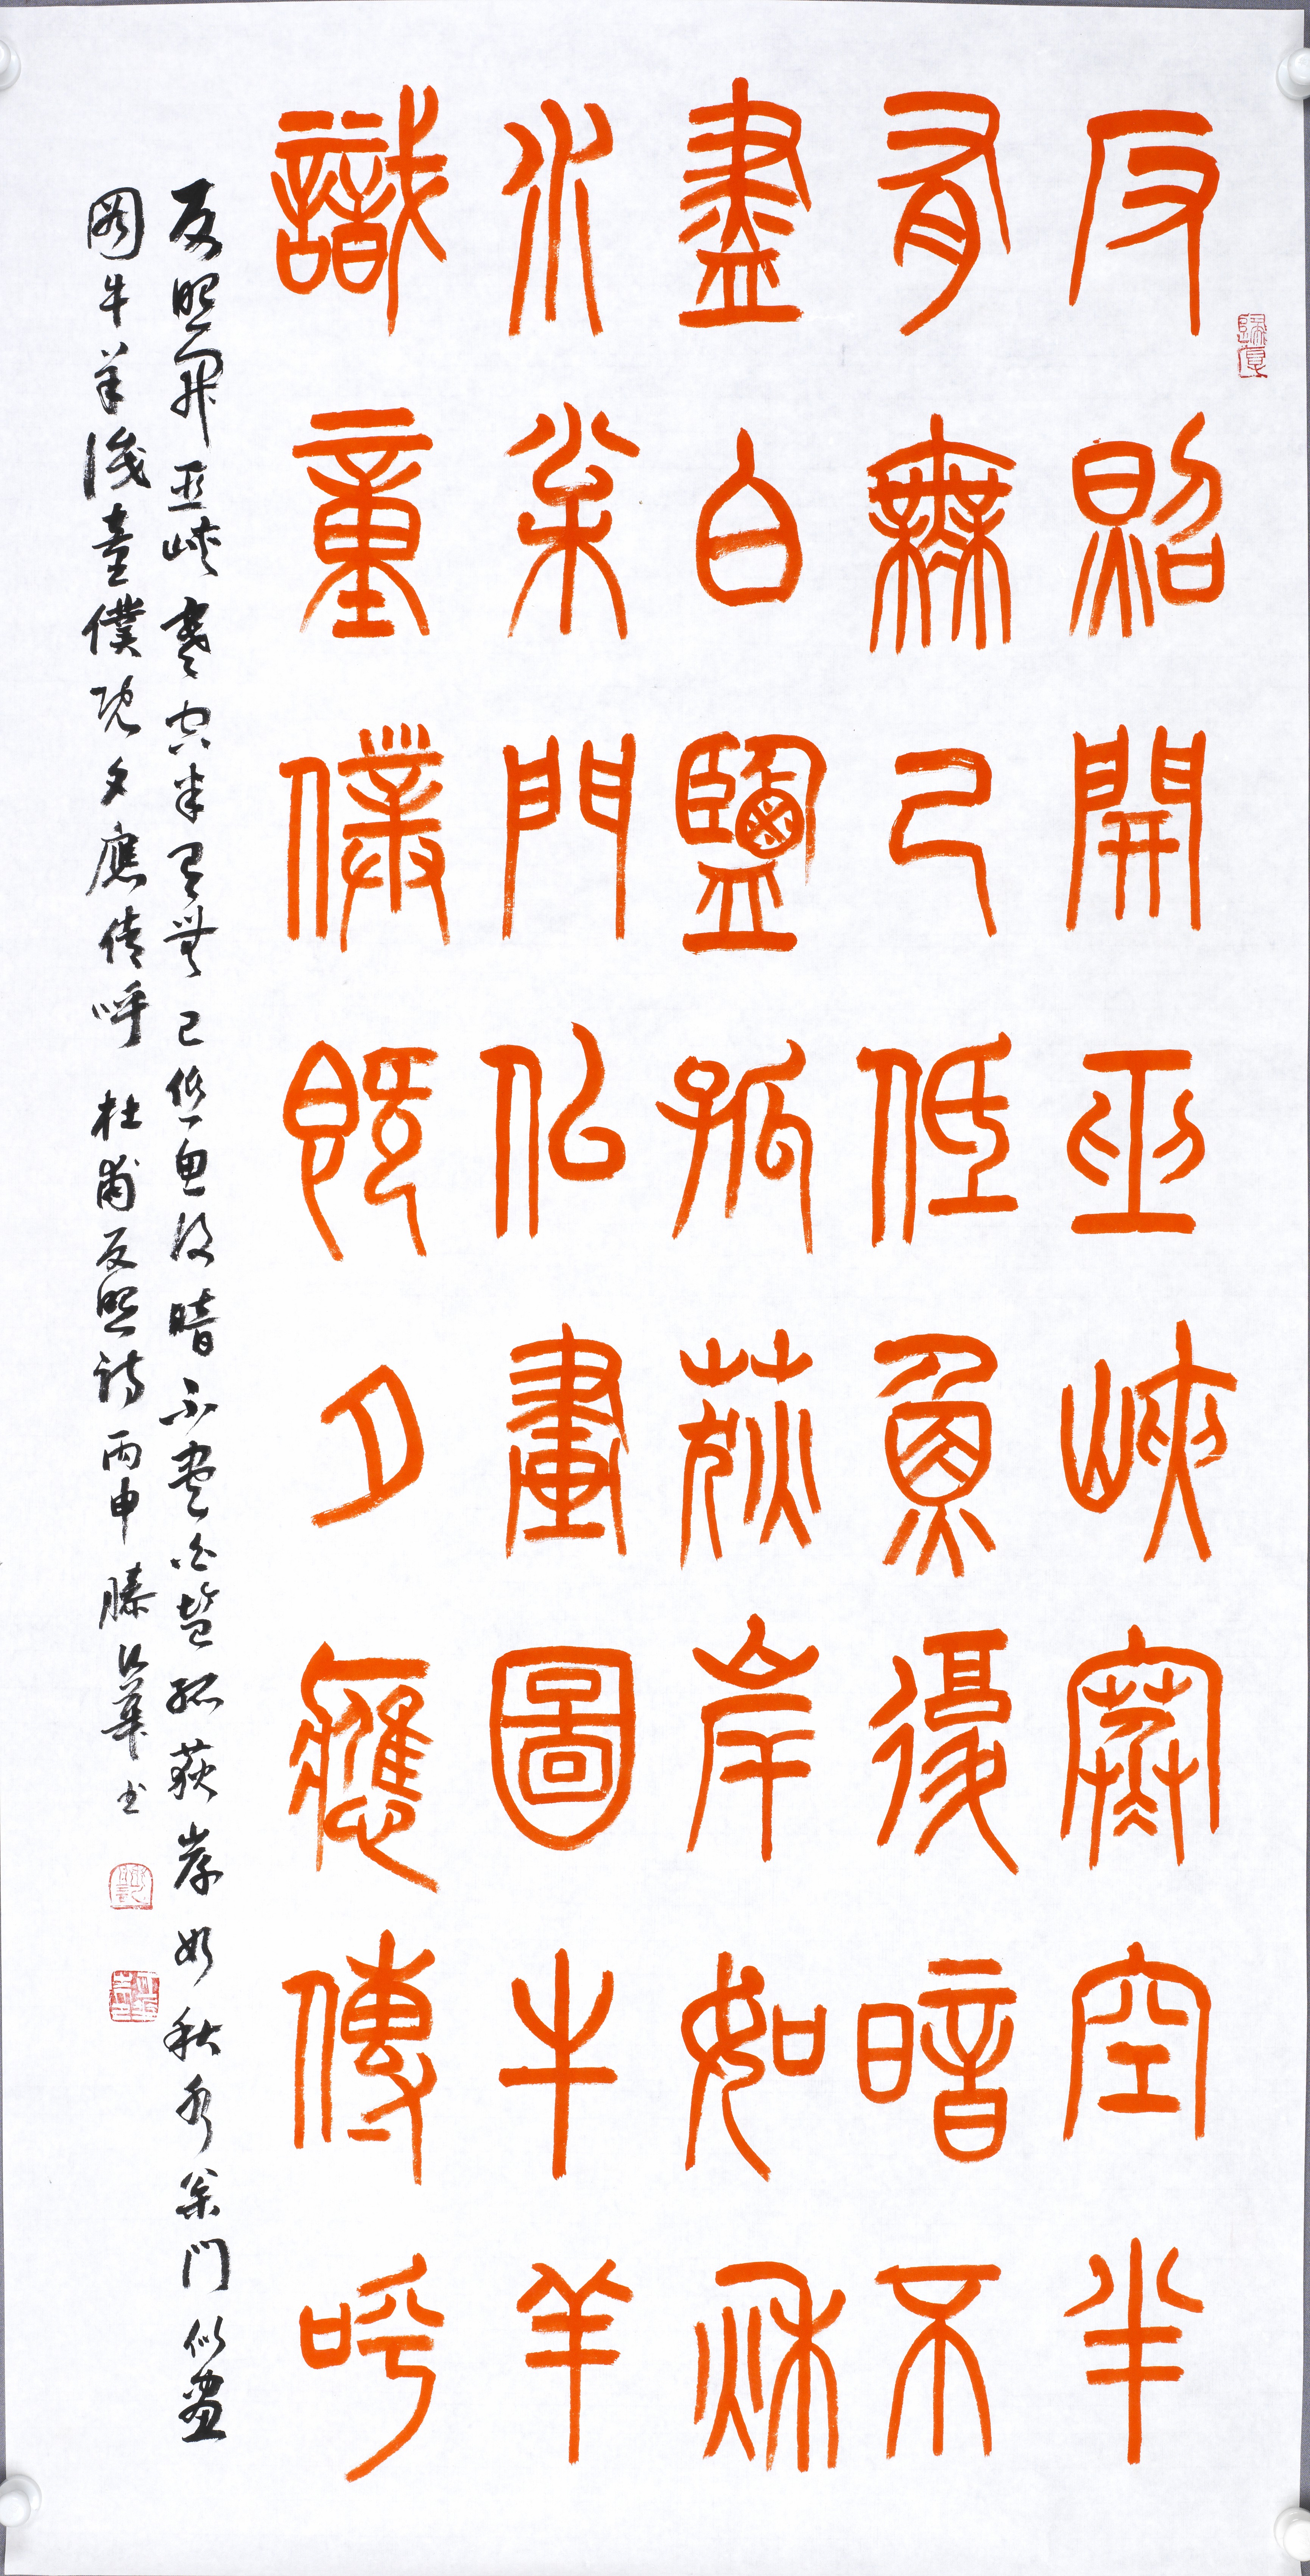 反照開巫峽寒空半
有無已低魚復暗不
盡白鹽孤荻岸如秋
水松門似畫圖牛羊
識童僕既夕應傳呼
反照開巫峽寒空半有無已低魚復暗不盡白鹽孤荻岸如秋水松門似畫
圖牛羊識童僕既夕應傳呼 杜甫反照詩 丙申 滕公華書